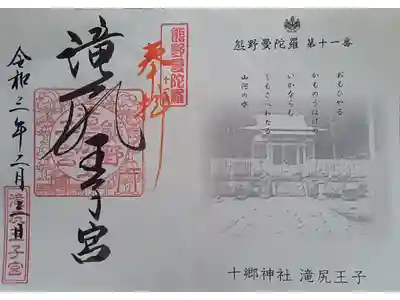 熊野曼陀羅 第十一番
おもひやる
かものうはげの
いかならむ
しもさへわたる
山河の水
十郷神社 滝尻王子
熊野曼陀羅
奉拝
滝尻王子宮
令和三年二月